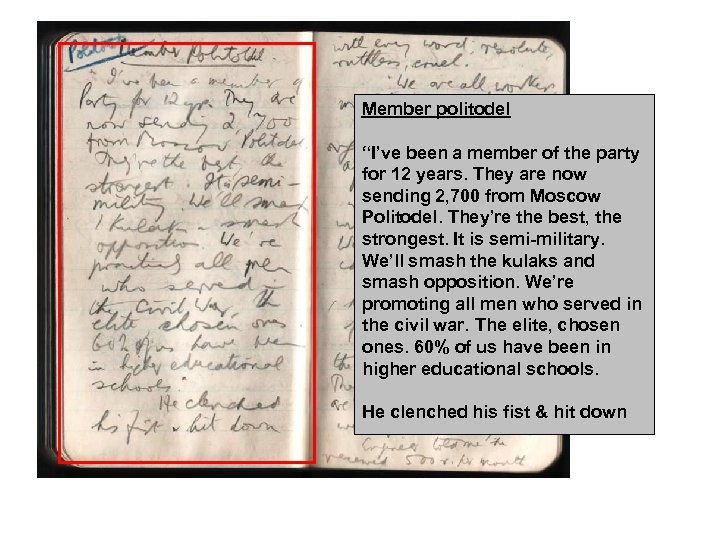 Politotdel
Member Politotdel.
"I've been a member of
Party for 12 yrs. They are
now sending 2,700
from Moscow Politodel.
They're the best, the
strongest. It is semi-
military. We'll smash
kulaks & smash
opposition. We're
all men
who served in
the Civil War, the
elite chosen ones.
60% of us have been
in higher educational
schools."
He clenched
his fist & hit down
with every word, resolute,
ruthless, cruel.
"We are all workers
Engineer told me he
received 500 r. per month
Member politodel
“I’ve been a member of the party
for 12 years. They are now
sending 2, 700 from Moscow
Politodel. They’re the best, the
strongest. It is semi-military.
We’ll smash the kulaks and
smash opposition. We’re
promoting all men who served in
the civil war. The elite, chosen
ones. 60% of us have been in
higher educational schools.
He clenched his fist & hit down